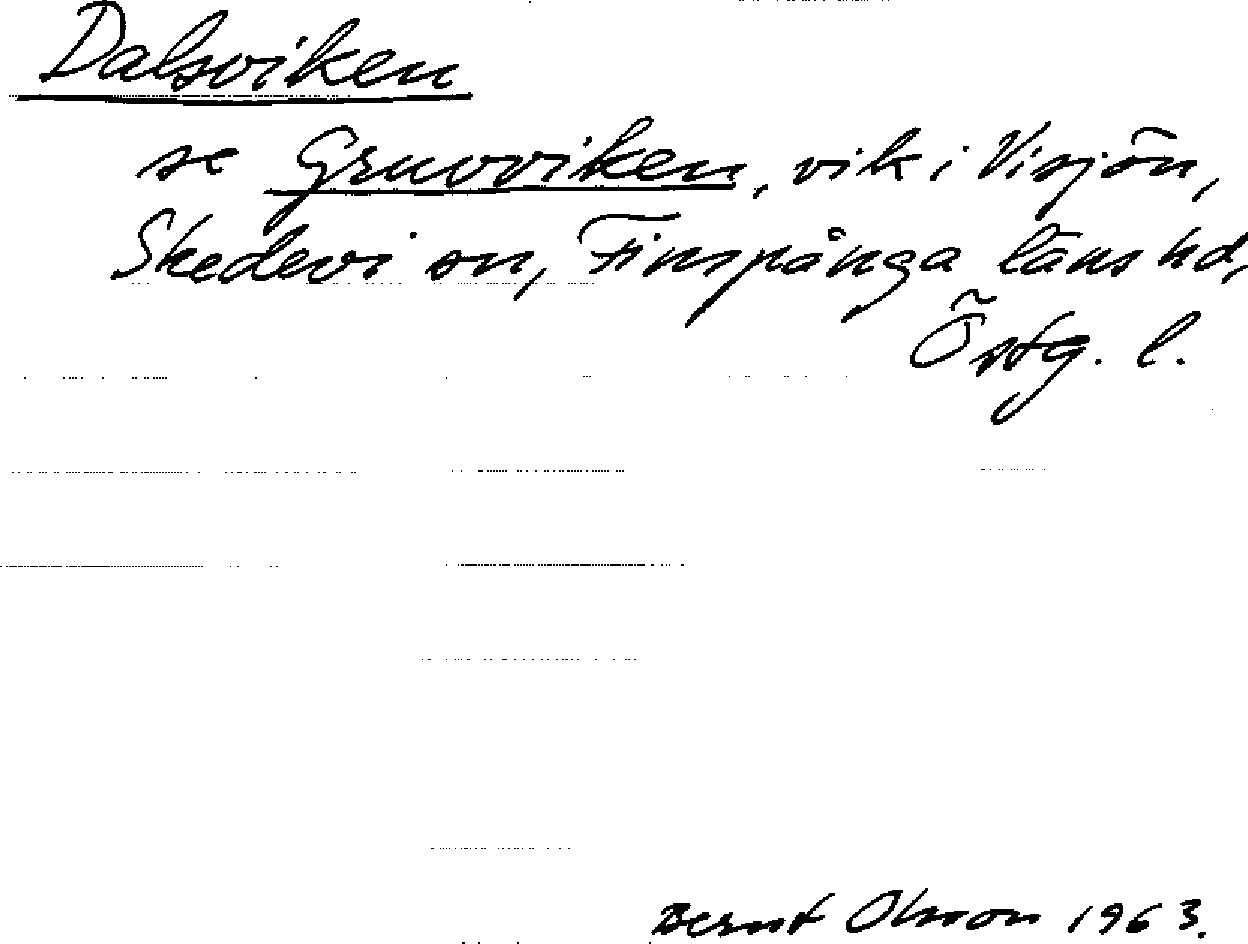 Dalsviken
se Gruvviken, vik i Visjön,
Skedevi sn, Finspånga läns hd,
Östg. l.
Bernt Olsson 1963.